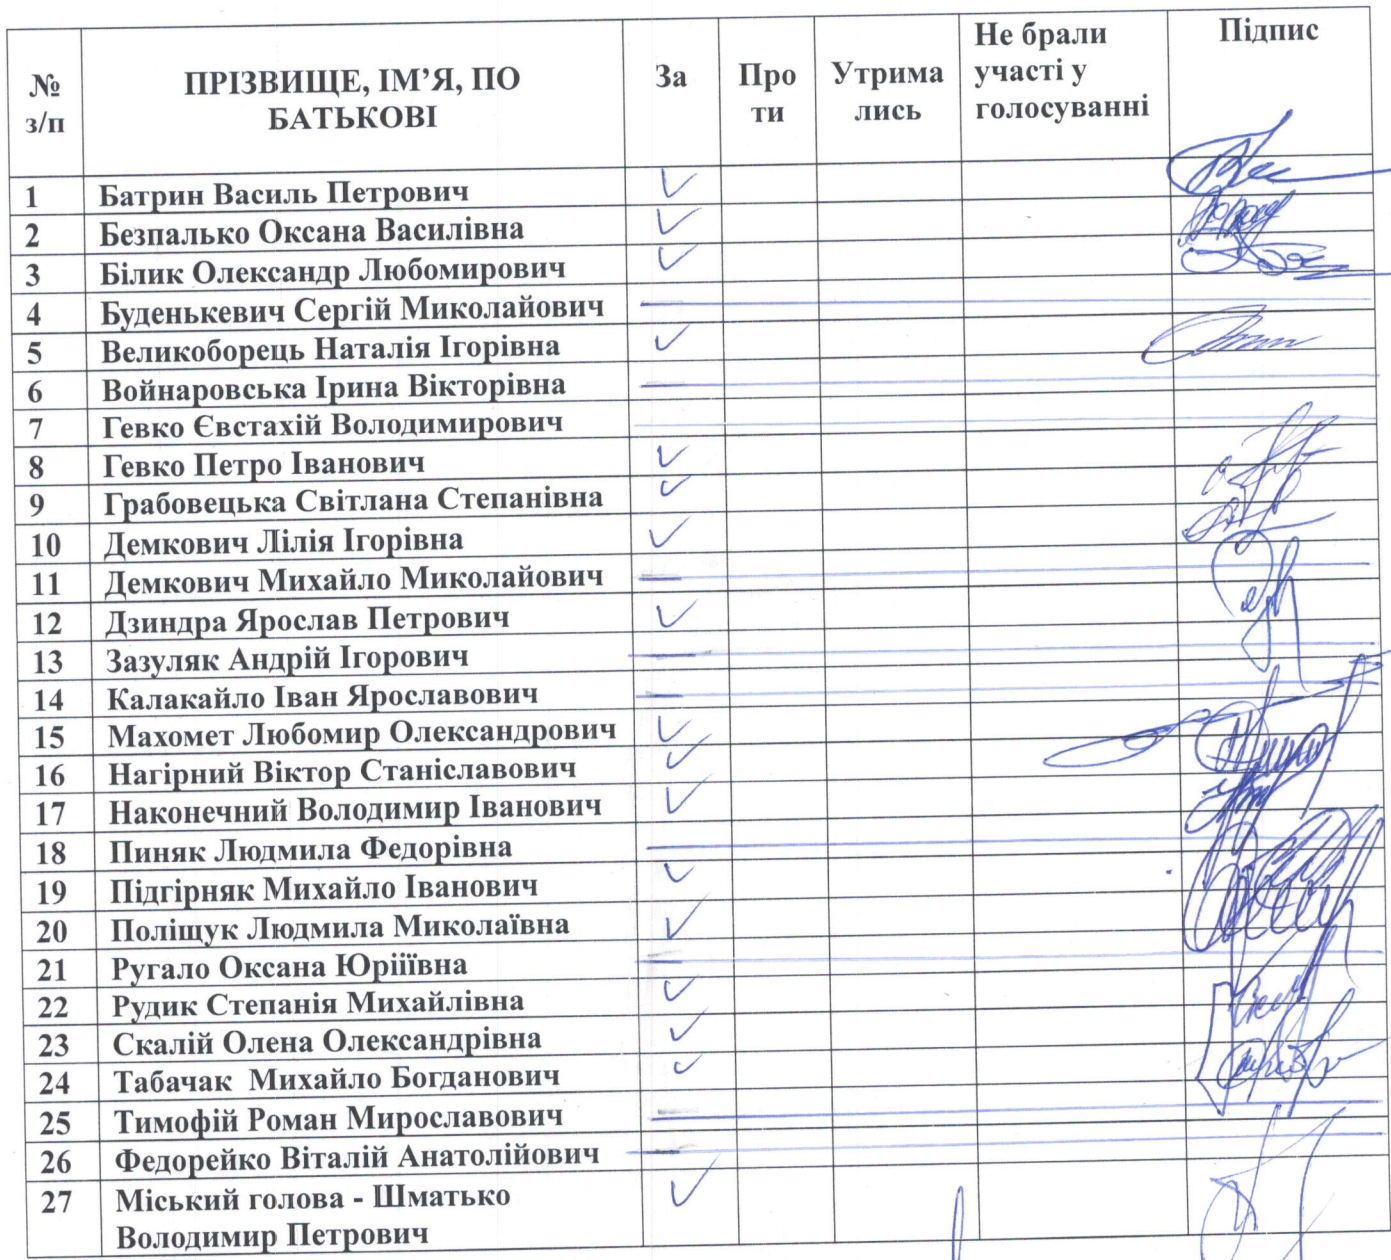 № з/п ПРІЗВИЩЕ, ІМ’Я, ПО БАТЬКОВІ За Про ти Утрима лись Не брали участі у голосуванні Підпис
1 Батрин Василь Петрович ✓
2 Безпалько Оксана Василівна ✓
3 Білик Олександр Любомирович ✓
4 Буденькевич Сергій Миколайович
5 Великоборець Наталія Ігорівна ✓
6 Войнаровська Ірина Вікторівна
7 Гевко Євстахій Володимирович
8 Гевко Петро Іванович ✓
9 Грабовецька Світлана Степанівна ✓
10 Демкович Лілія Ігорівна ✓
11 Демкович Михайло Миколайович
12 Дзиндра Ярослав Петрович ✓
13 Зазуляк Андрій Ігорович
14 Калакайло Іван Ярославович
15 Махомет Любомир Олександрович ✓
16 Нагірний Віктор Станіславович ✓
17 Наконечний Володимир Іванович ✓
18 Пиняк Людмила Федорівна
19 Підгірняк Михайло Іванович ✓
20 Поліщук Людмила Миколаївна ✓
21 Ругало Оксана Юріїівна
22 Рудик Степанія Михайлівна ✓
23 Скалій Олена Олександрівна ✓
24 Табачак Михайло Богданович ✓
25 Тимофій Роман Мирославович
26 Федорейко Віталій Анатолійович
27 Міський голова - Шматько ✓
Володимир Петрович